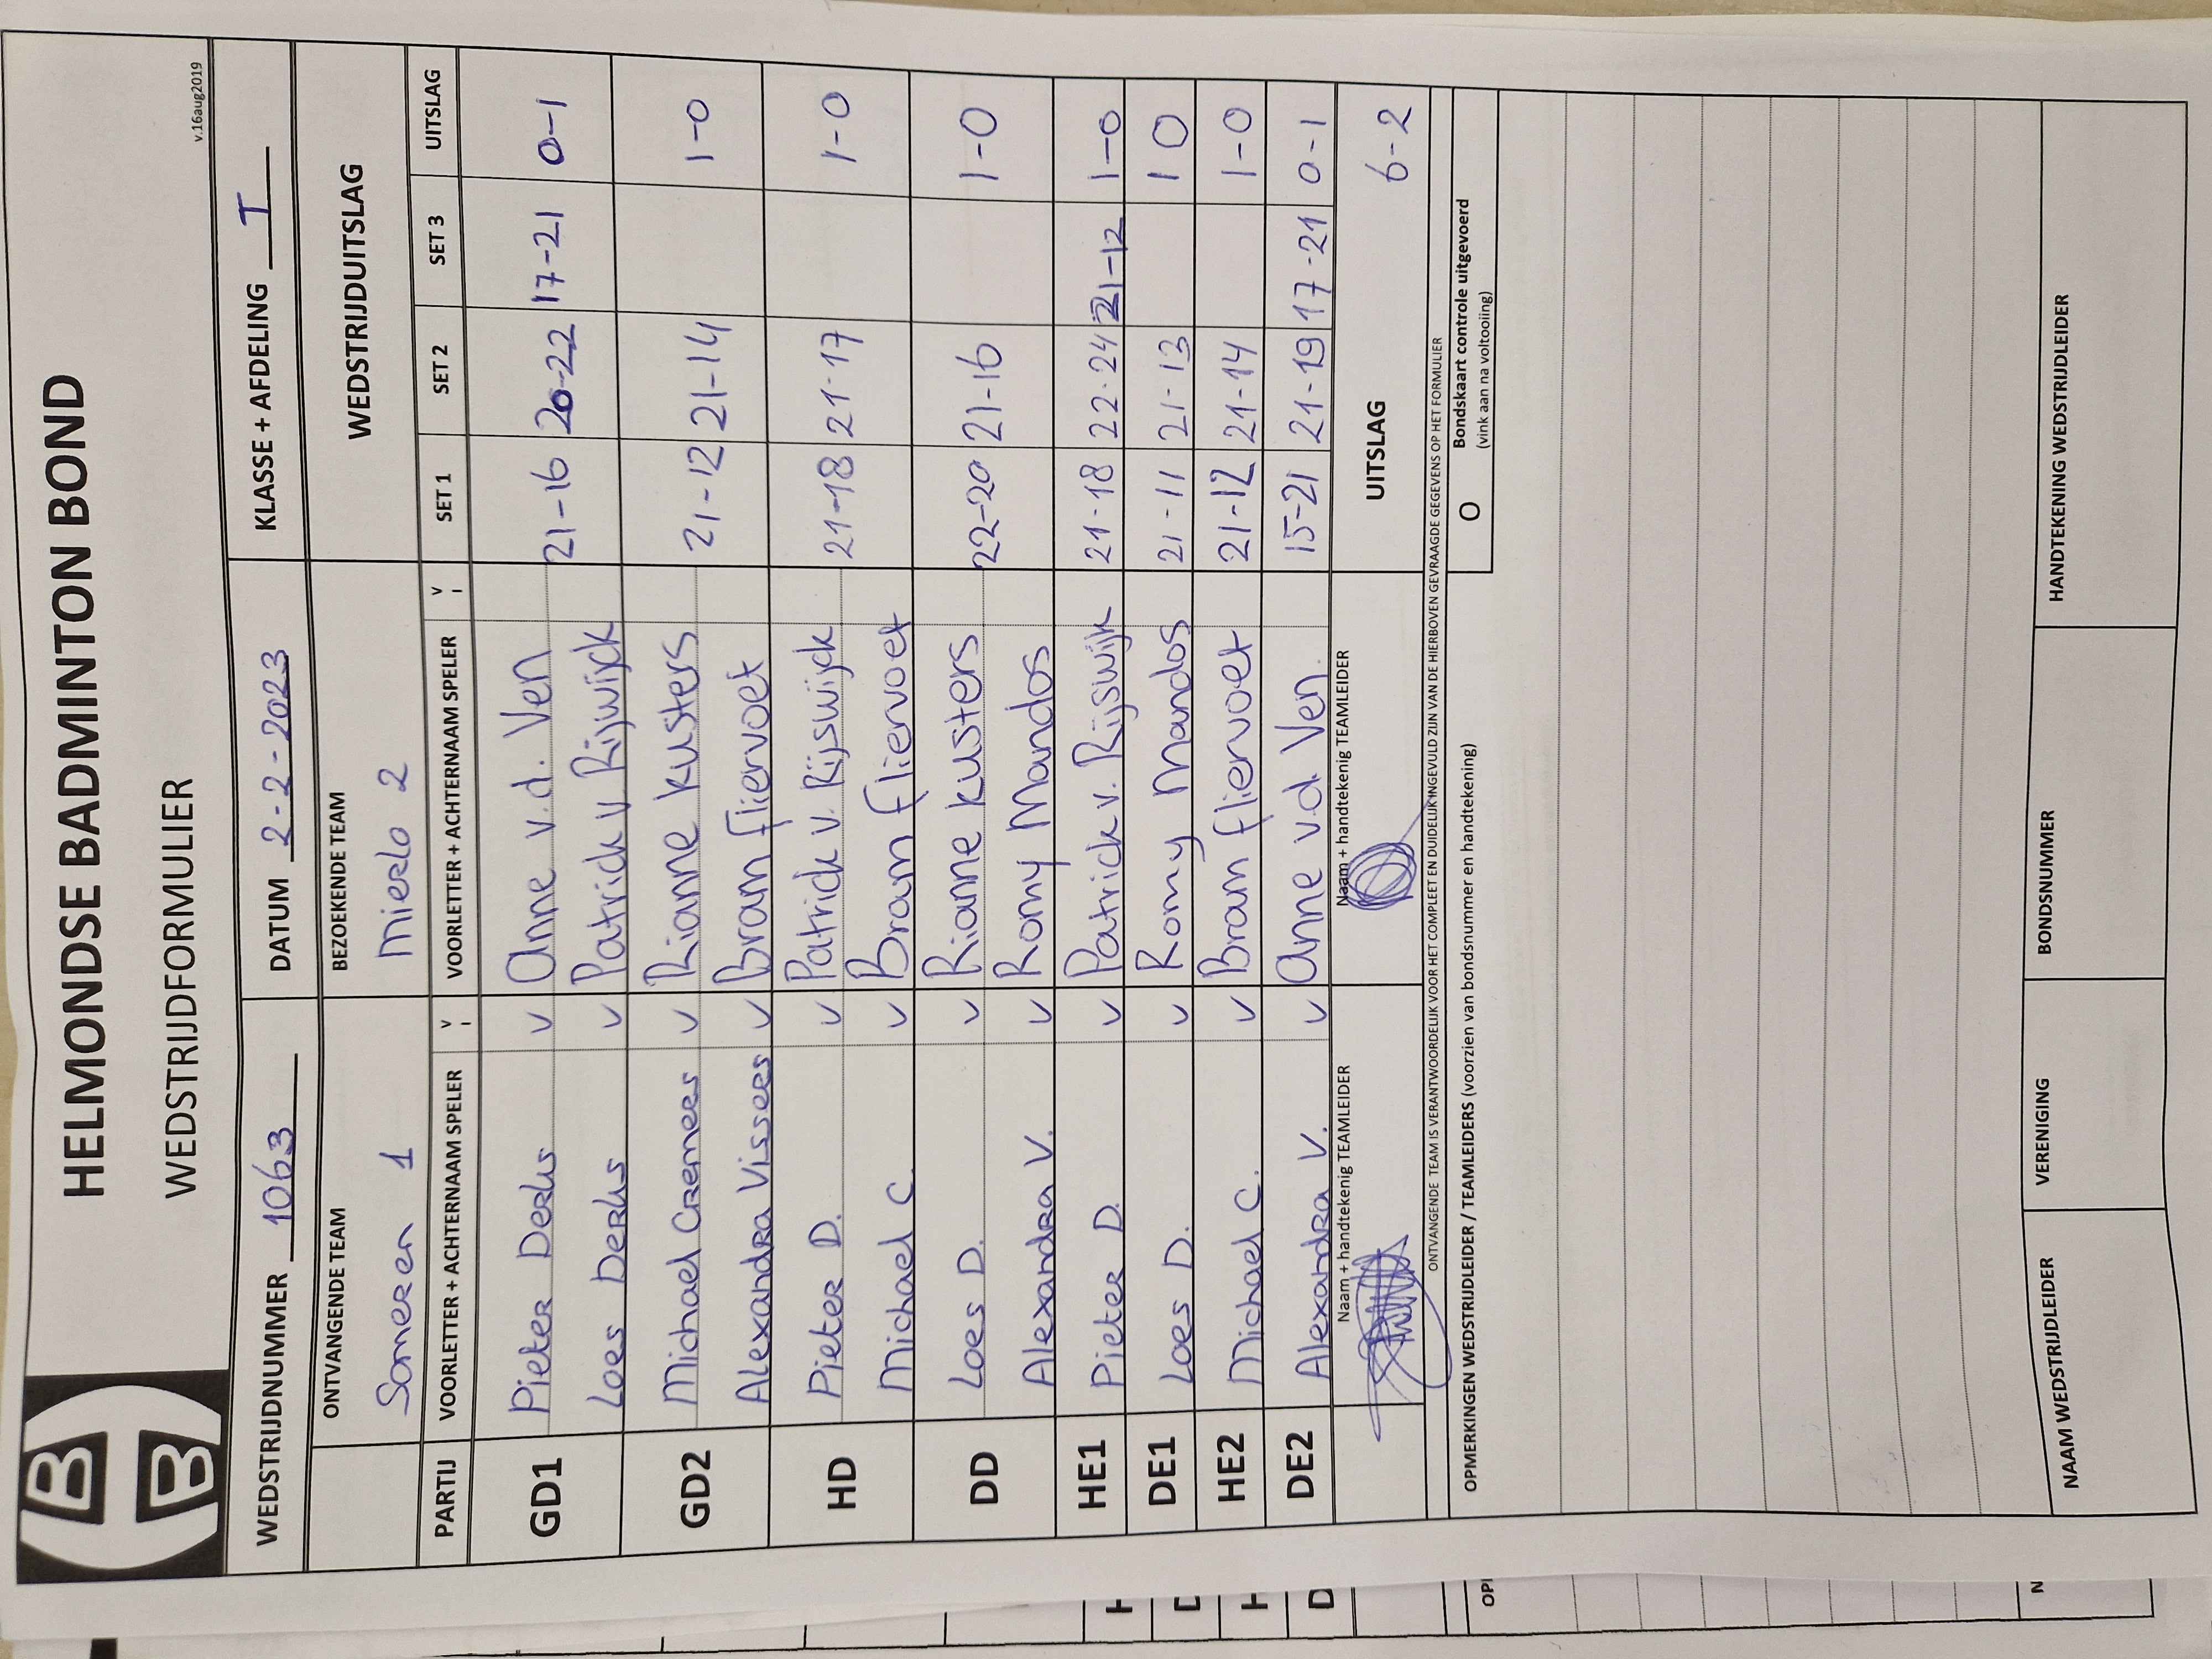 HELMONDSE BADMINTON BOND
WEDSTRIJDFORMULIER
v.16aug2019
WEDSTRIJDNUMMER 1063 DATUM 2-2-2023 KLASSE + AFDELING I
ONTVANGENDE TEAM BEZOEKENDE TEAM WEDSTRIJDUITSLAG
Someren 1 Mierlo 2
PARTIJ VOORLETTER + ACHTERNAAM SPELER V VOORLETTER + ACHTERNAAM SPELER V SET 1 SET 2 SET 3 UITSLAG
GD1 Pieter Derks v Anne v.d. Ven 21-16 20-22 17-21 0-1
Loes Derks v Patrick v. Rijwijck
GD2 Michael Cremers v Rianne Kusters 21-12 21-14 1-0
Alexandra Vissers v Bram Fliervoet
HD Pieter D. v Patrick v. Rijswijck 21-18 21-17 1-0
Michael C v Bram Fliervoet
DD Loes D. v Rianne Kusters 22-20 21-16 1-0
Alexandra V. v Romy Mandos
HE1 Pieter D. v Patrick v. Rijswijk 21-18 22-24 21-12 1-0
DE1 Loes D. v Romy Mandos 21-11 21-13 1 0
HE2 Michael C. v Bram Fliervoet 21-12 21-14 1-0
DE2 Alexandra V. v Anne v.d. Ven. 15-21 21-19 17-21 0-1
Naam + handtekenig TEAMLEIDER Naam + handtekenig TEAMLEIDER UITSLAG 6-2
ONTVANGENDE TEAM IS VERANTWOORDELIJK VOOR HET COMPLEET EN DUIDELIJK INGEVULD ZIJN VAN DE HIERBOVEN GEVRAAGDE GEGEVENS OP HET FORMULIER
OPMERKINGEN WEDSTRIJDLEIDER / TEAMLEIDERS (voorzien van bondsnummer en handtekening) O Bondskaart controle uitgevoerd
(vink aan na voltooiing)
NAAM WEDSTRIJDLEIDER VERENIGING BONDSNUMMER HANDTEKENING WEDSTRIJDLEIDER